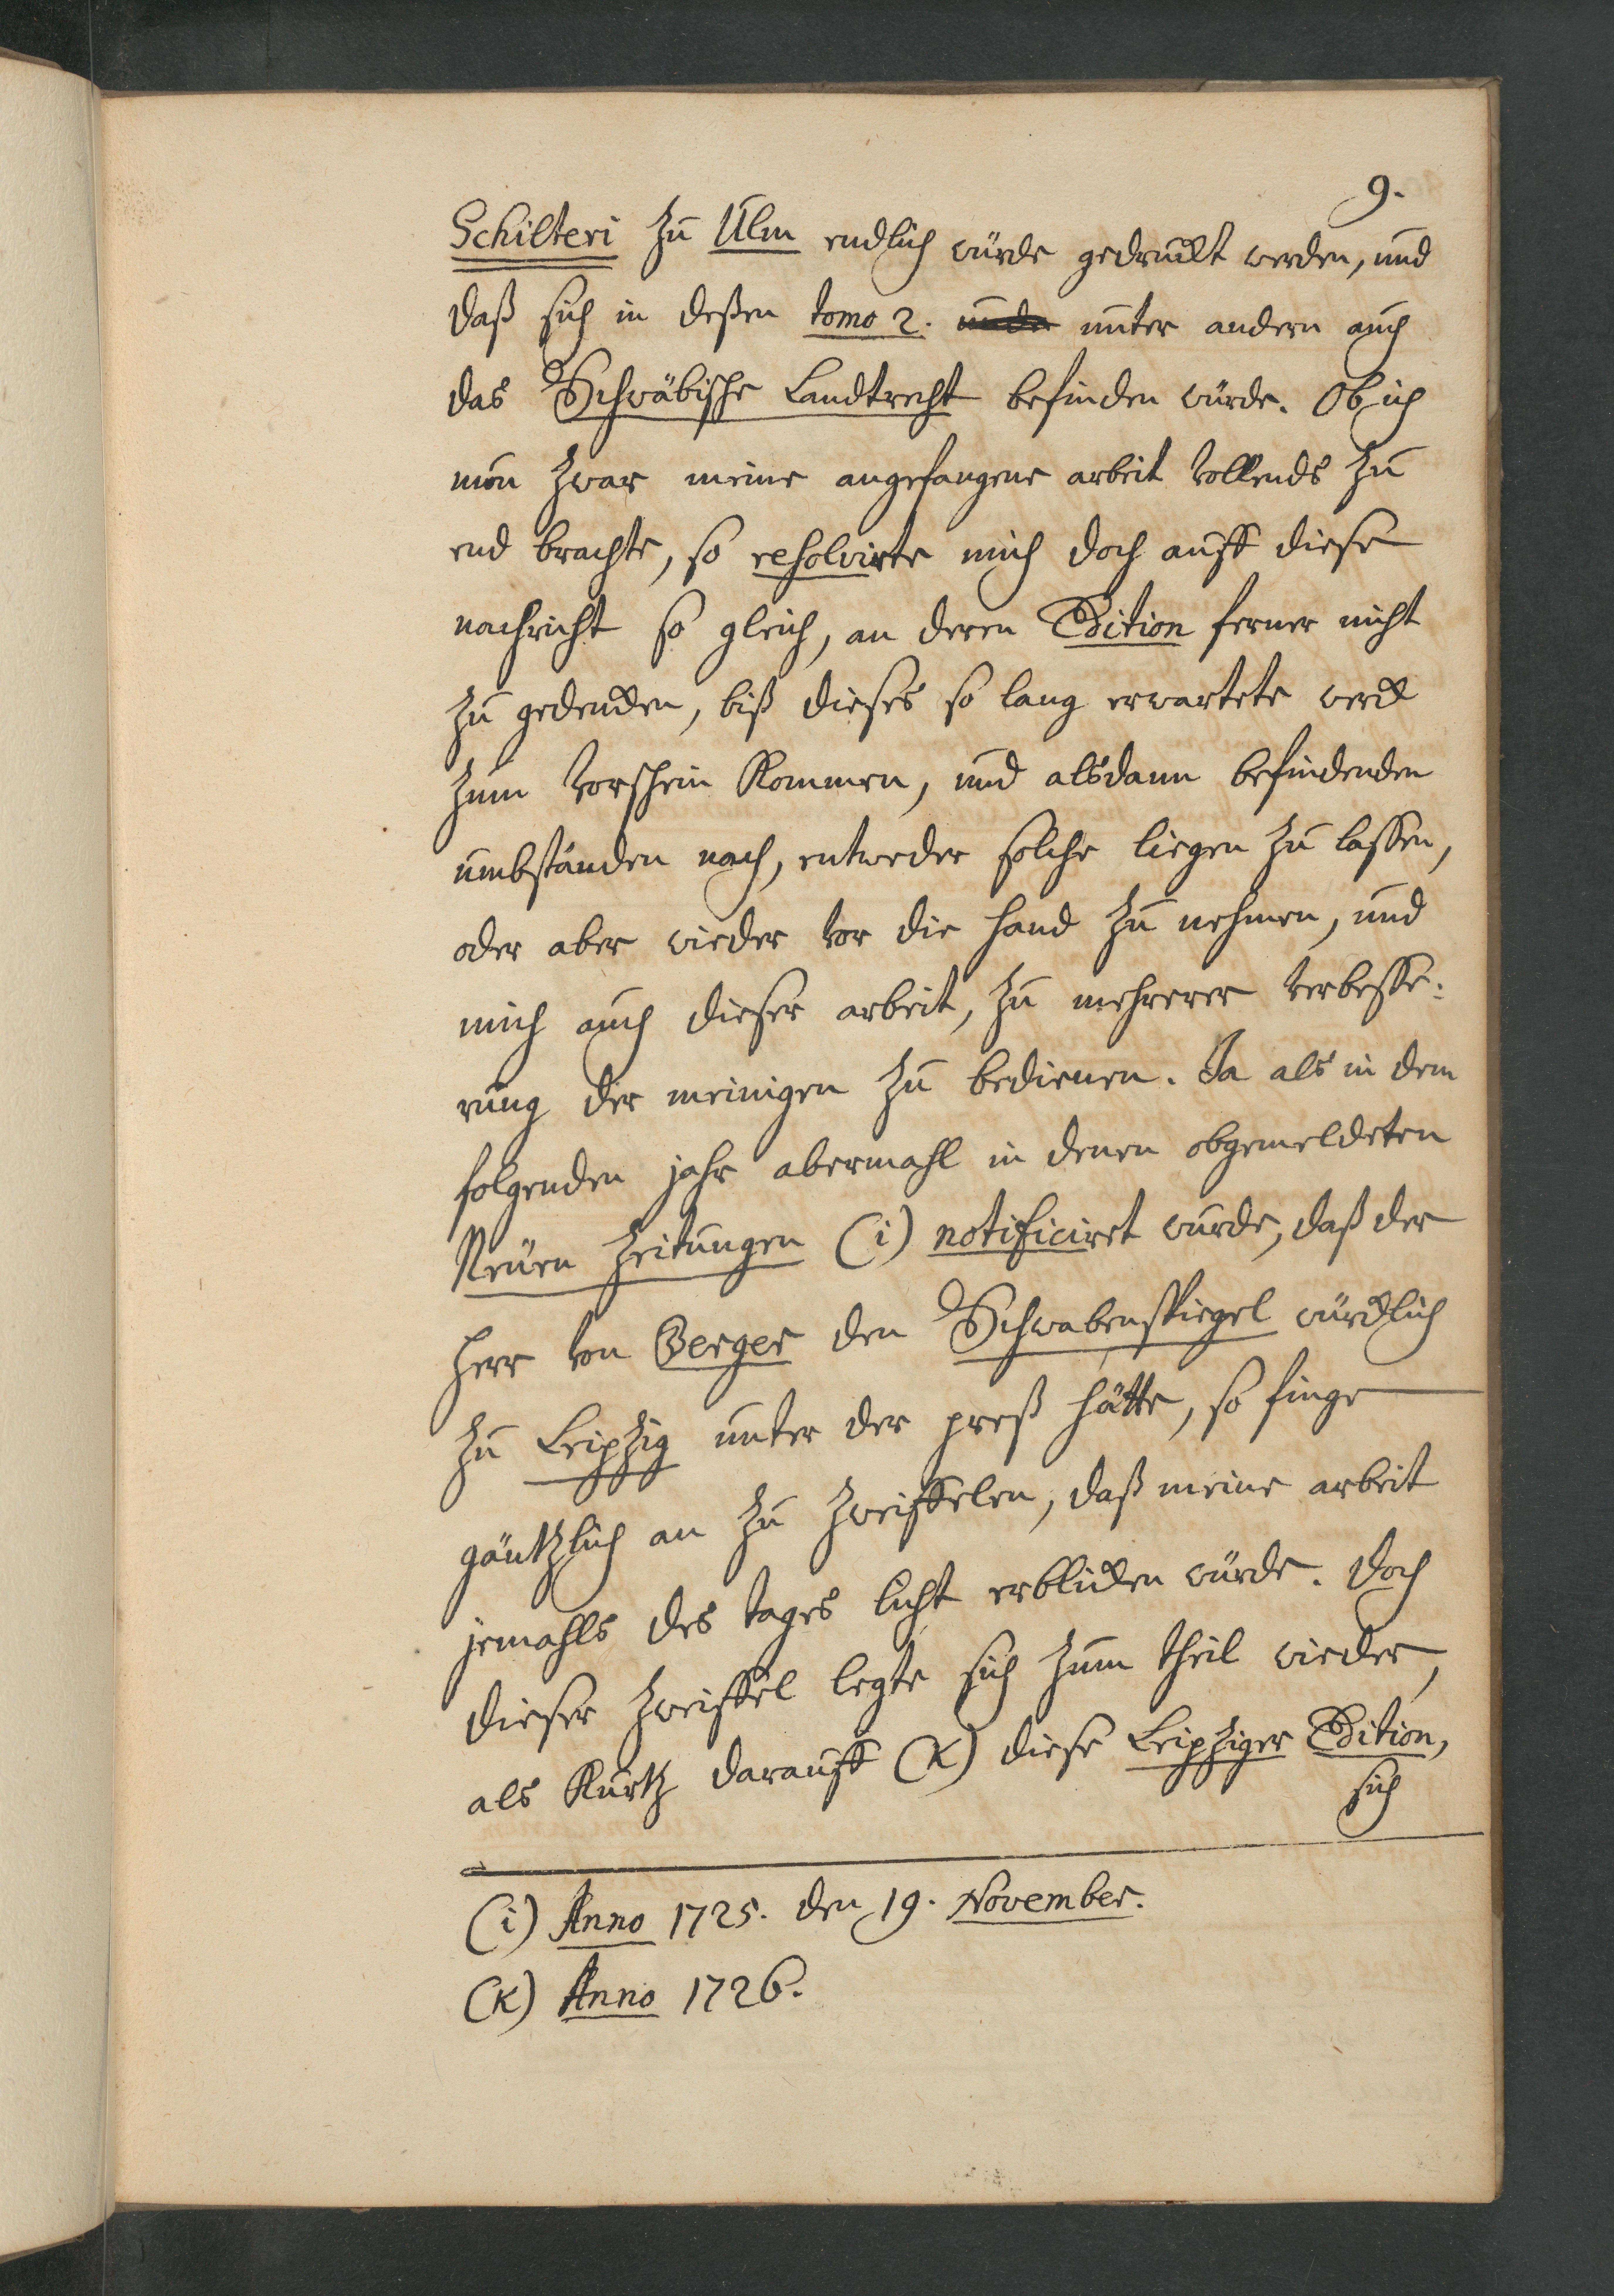 9.
Schilteri zu Ulm endlich würde gedruckt werden, und
daß sich in deßen tomo 2. unter andern auch
das Schwäbische Landtrecht befinden würde. Ob ich
nun zwar meine angefangene arbeit vollends zu
end brachte, so resolvirte mich doch auff diese
nachricht so gleich, an deren Edition ferner nicht
zu gedencken, biß dieses so lang erwartete werck
zum vorschein kommen, und alsdann befindenden
umbständen nach, entweder solche liegen zu lassen,
oder aber wieder vor die hand zu nehmen, und
mich auch dieser arbeit, zu mehrerer verbesse-
rung der meinigen zu bedienen. Ja als in dem
folgenden jahr abermahl in denen obgemeldeten
Neüen Zeitungen (i) notificiret wurde, daß der
Herr von Berger den Schwabenspiegel würcklich
zu Leipzig unter der preß hätte, so finge
gäntzlich an zu zweiffelen, daß meine arbeit
jemahls des tages licht erblicken würde. Doch
dieser zweiffel legte sich zum theil wieder,
als kurtz darauff (k) diese Leipziger Edition,
sich
(i) Anno 1725. den 19. November.
(k) Anno 1726.